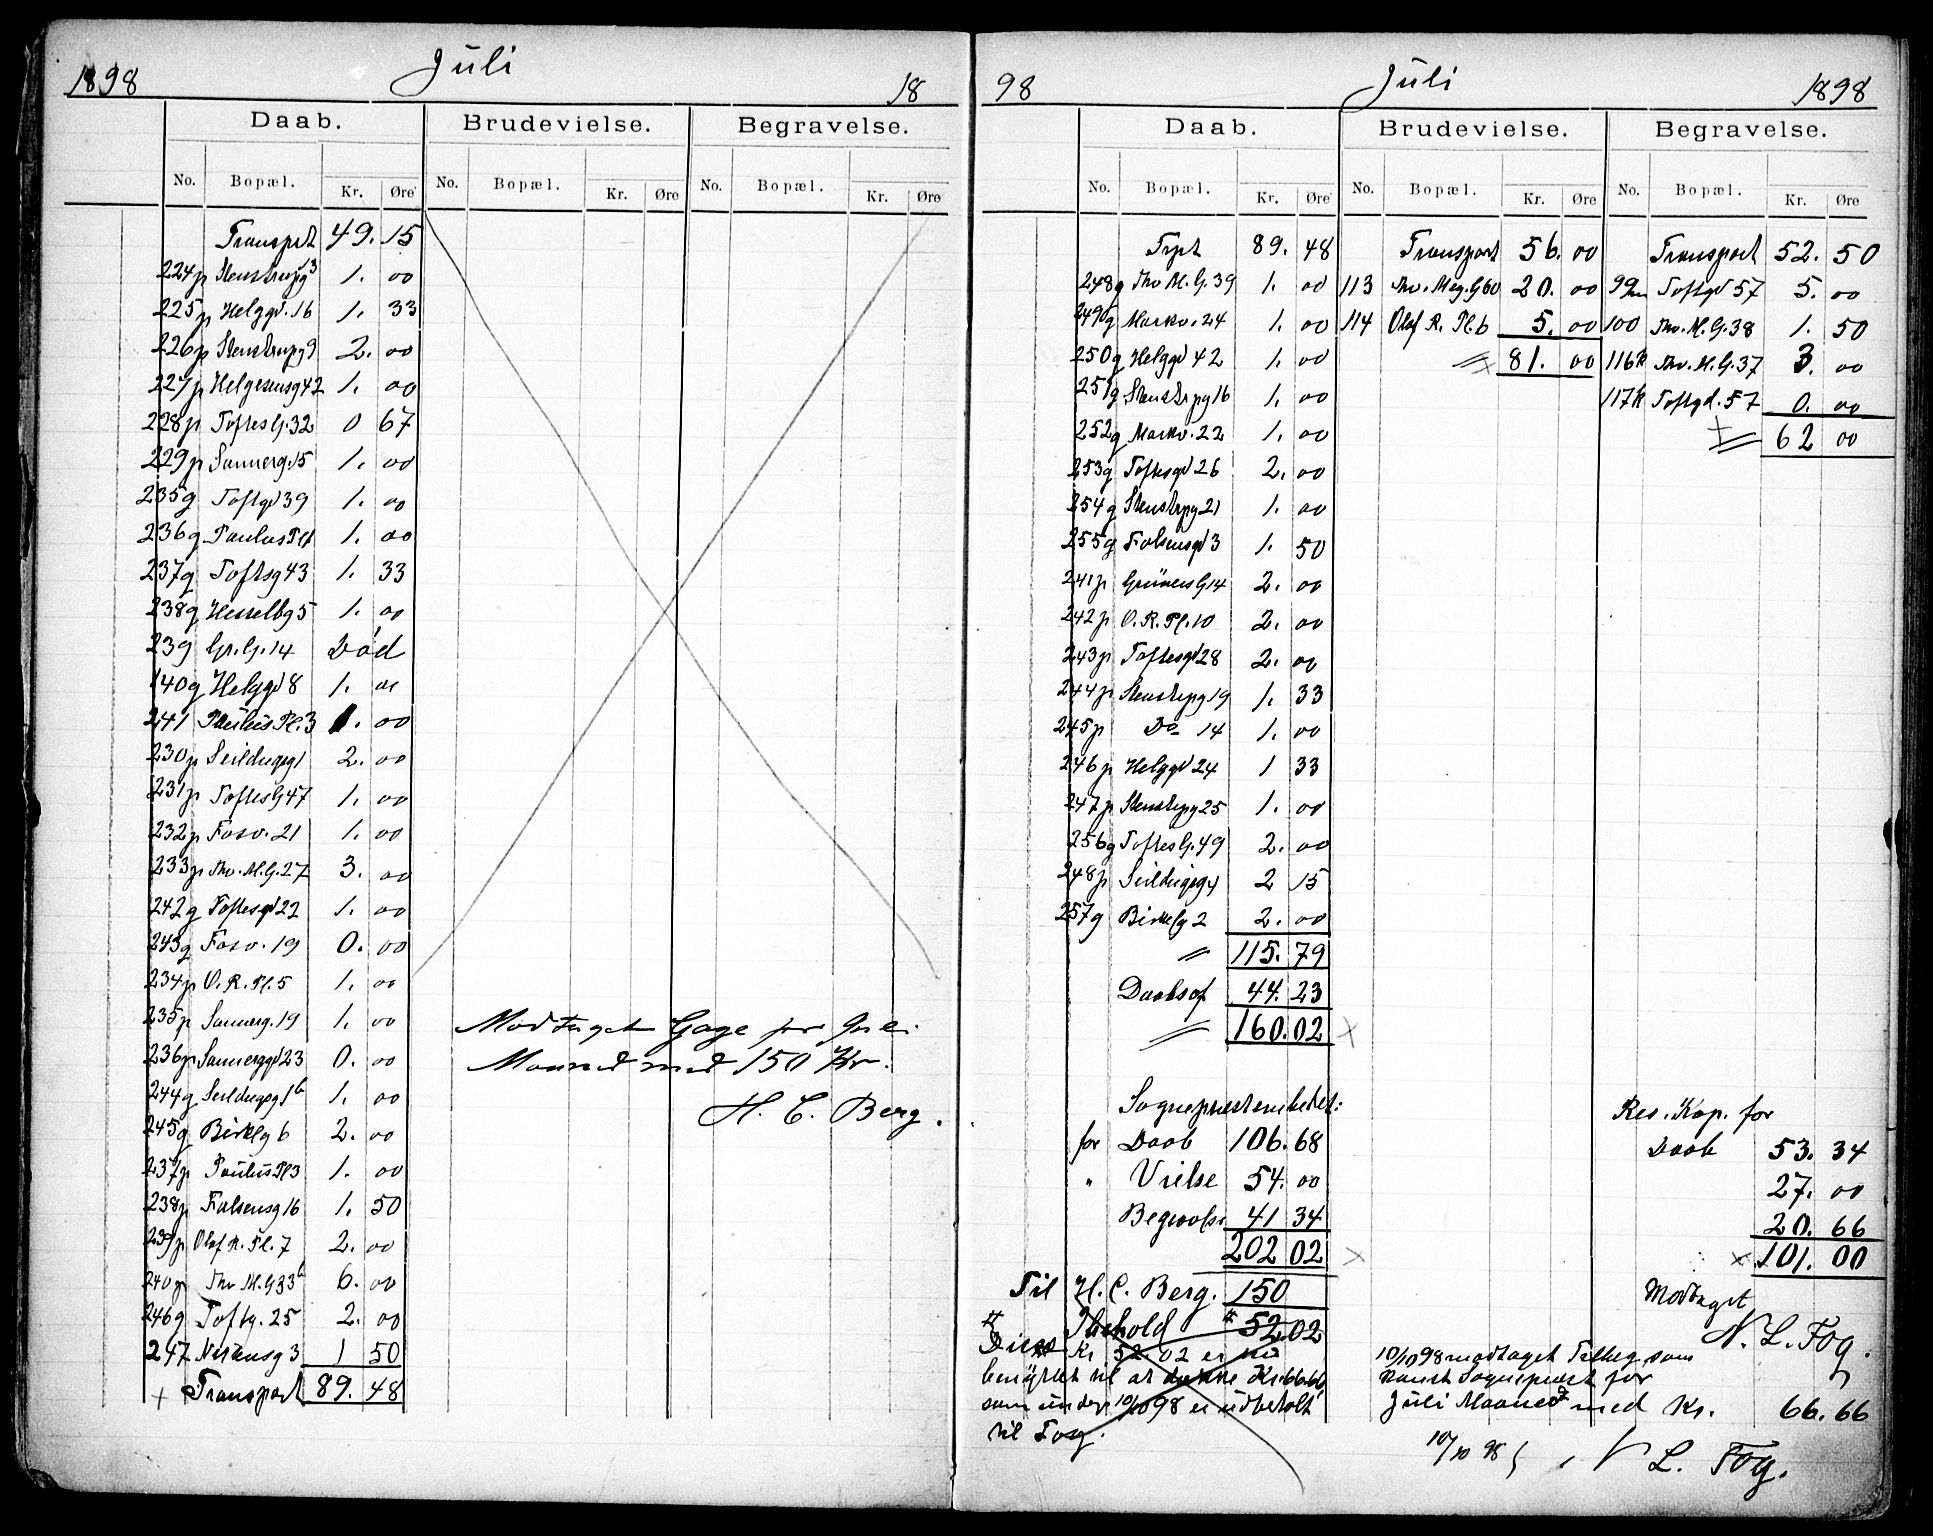 1898 Juli 18
Daab. Brudevielse. Begravelse.
No. Bopæl. Kr. Øre No. Bopæl. Kr. Øre No. Bopæl. Kr. Øre
Transprt 49. 15
224p Stenstrupg 3 1. 00
225p Helggd. 16 1. 33
226p Stenstrupg 9 2. 00
227p Helgesensg 42 1. 00
228p Toftes G. 32 0 67
229p Sannerg. 15 1. 00
235g Toftgd 39 1. 00
236g Paulus Pl 1. 00
237g Toftsg 43 1. 33
238g Hesselbg 5 1. 00
239 Gr. G. 14 Död
140g Helggd 8 1. 00
241 Paulus Pl. 3 1. 00
230p Seildugsg 1 2. 00
231p Toftes G 47 1. 00
232p Fosv. 21 1. 00
233p Thv. M. G. 27 3. 00
242g Toftesgd 22 1. 00
243g Fosv. 19 0. 00
234p O. R. Pl. 5 1. 00
235p Sannerg. 19 1. 00
236p Sannerggd 23 0. 00
244g Seildugsg 1b 1. 00
245g Birklg 6 2. 00
237p Paulus Pl 3 1. 00
238p Falsensg 16 1. 50
239p Olaf R. Pl. 7 2. 00
240p Thv M. G 33b 6. 00
246g Toftg. 25 2. 00
247 Nordensg 3 1 50
Transport 89. 48
Modtaget Gage for Juli
Maaned med 150 Kr.
H. C. Berg.
98 Juli 1898
Daab. Brudevielse. Begravelse.
No. Bopæl. Kr. Øre No. Bopæl. Kr. Øre No. Bopæl. Kr. Øre
Trpt 89. 48 Transport 56. 00 Transport 52. 50
248g Thv M. G. 39 1. 00 113 Thv. Meg. G 60 20. 00 99m Toftgd 57 5. 00
249g Markv. 24 1. 00 114 Olaf R. Pl. 6 5. 00 100 Thv. M. G. 38 1. 50
250g Helggd 42 1. 00 81. 00 116k Thv. M. G. 37 3. 00
251g Stenstrpg 16 1. 00 117k Toftgd. 57 0. 00
252g Markv. 22 1. 00 62 00
253g Toftesgd 26 2. 00
254g Stenstrpg 21 1. 00
255g Falsensgd 3 1. 50
241p Grüners G 14 2. 00
242p O. R. Pl. 10 2. 00
243p Toftesgd 28 2. 00
244p Stenstrpg 19 1. 33
245p Do 14 1. 00
246p Helggd 24 1 33
247p Stenstrpg 25 1. 00
256g Toftes G. 49 2. 00
248p Seildugsg 4 2 15
257g Birkelg 2 2. 00
115. 79
Daabsof 44. 23
160. 02
Sognepræstembetet:
for Daab 106. 68
" Vielse 54. 00
Begravelse 41 34
202 02
Til H. C. Berg. 150
Ibehold 52. 02
Disse Kr 52. 02 er nu
benyttet til at dække Kr 66.66
som under 10/10 98 er udbetalt
til Fog.
Res. Kap. for
Daab 53. 34
27. 00
20. 66
101. 00
Modtaget
N. L. Fog.
10/10 98 modtaget Tillæg som
konst Sognepræst for
Juli Maaned med Kr. 66. 66
10/10 98 N L. Fog.